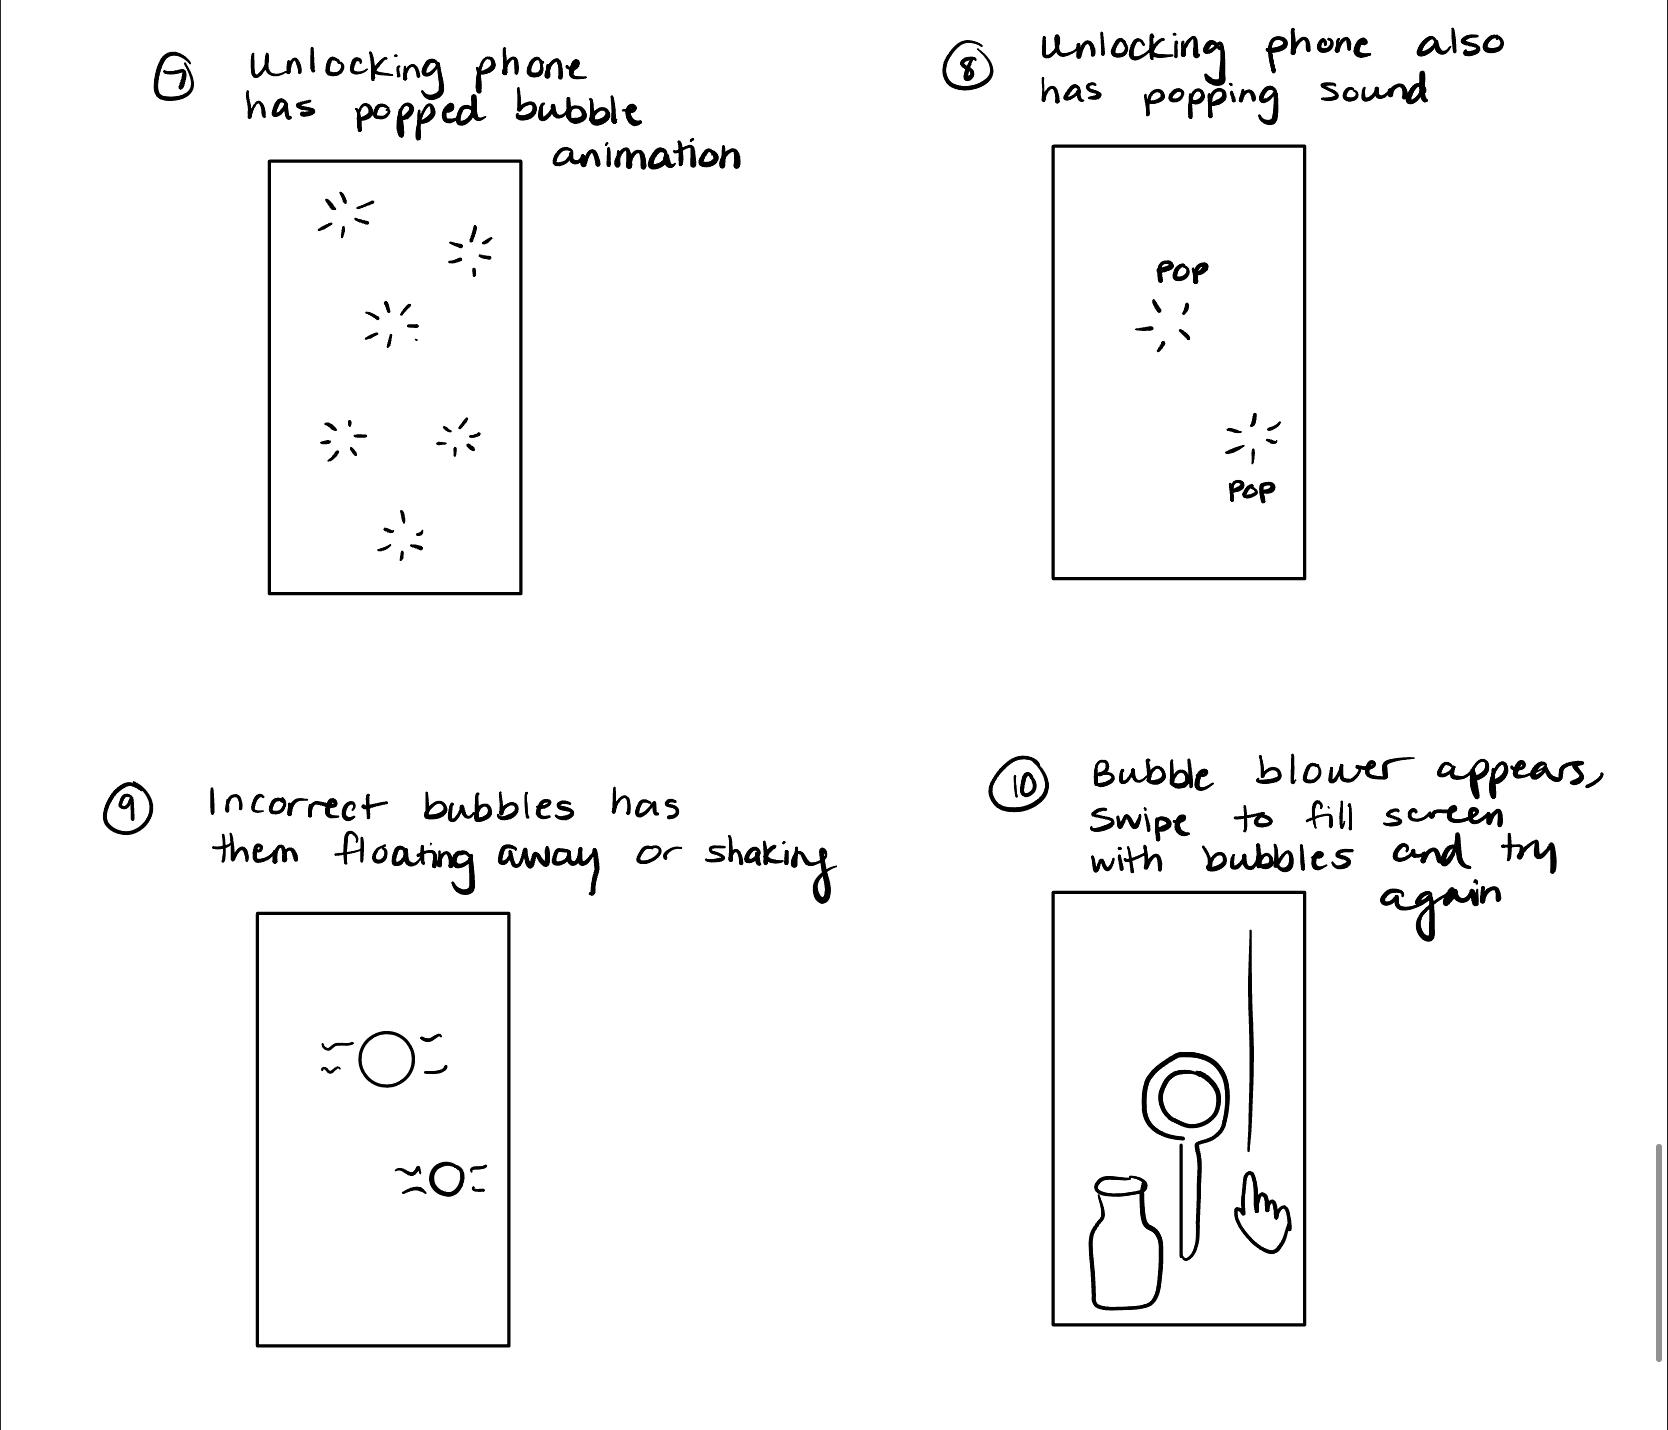 7 Unlocking phone
has popped bubble
animation
8 Unlocking phone also
has popping sound
POP
POP
9 Incorrect bubbles has
them floating away or shaking
10 Bubble blower appears,
swipe to fill screen
with bubbles and try
again